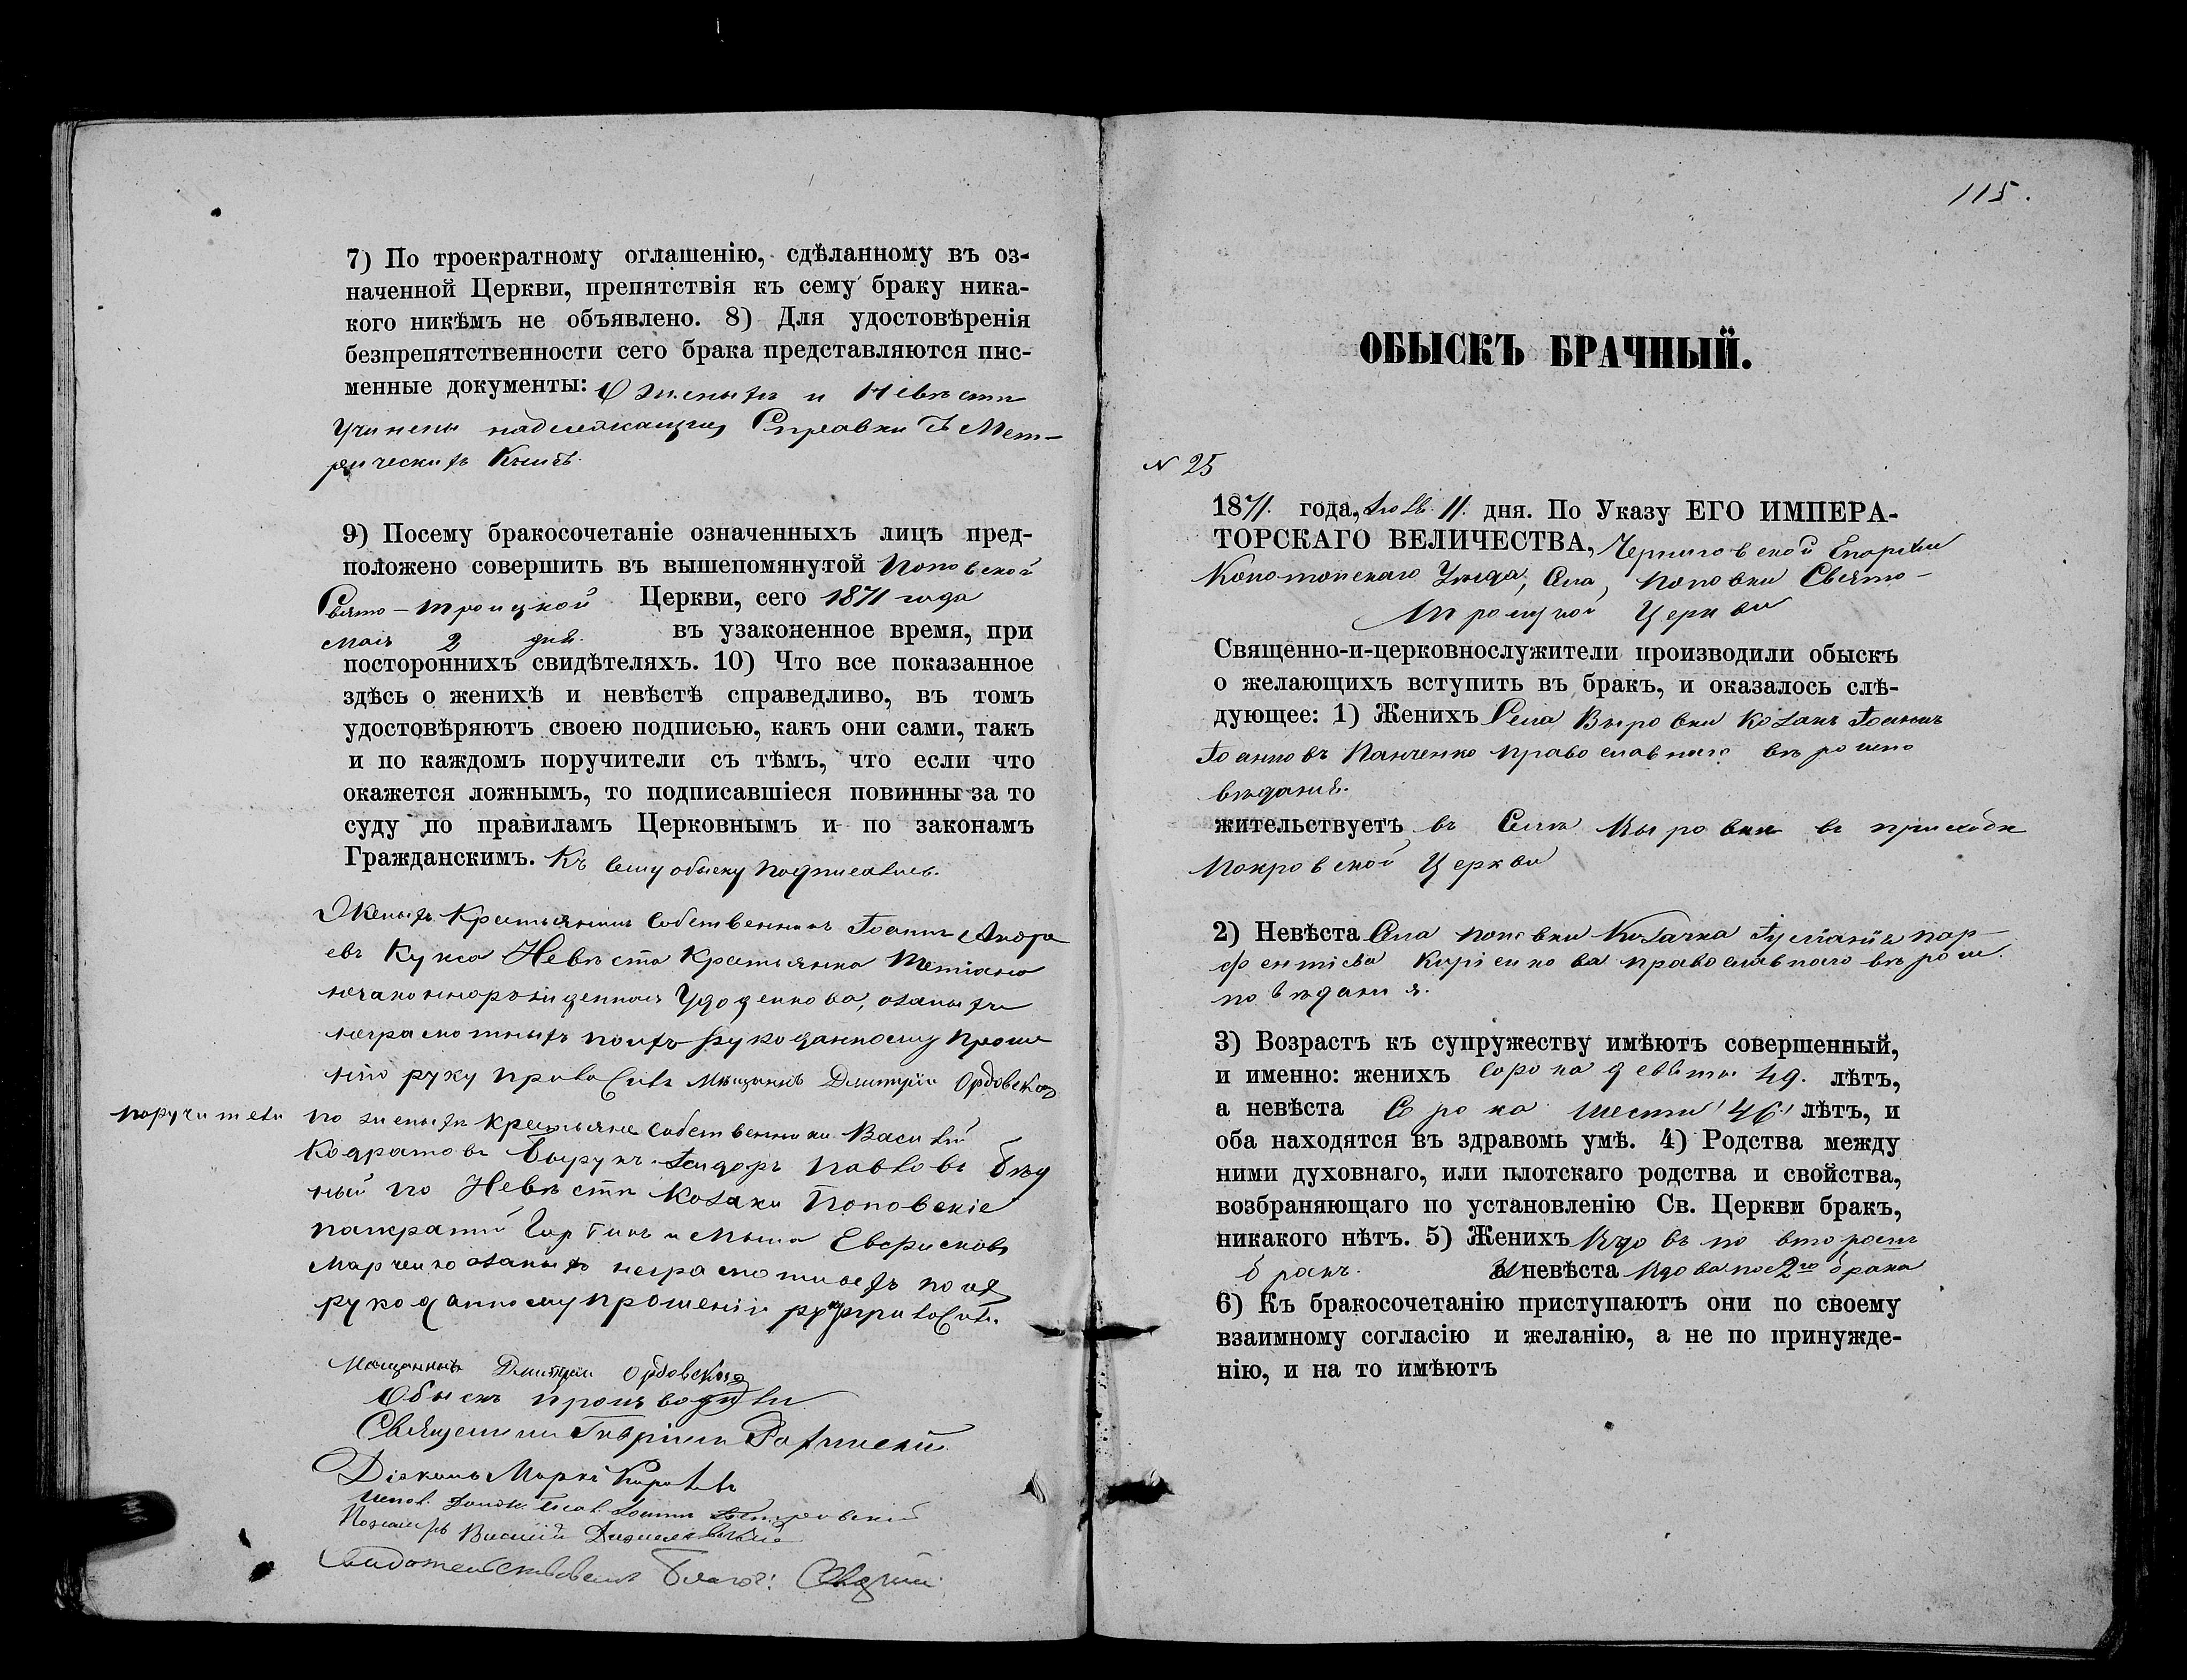 7) По троекратному оглашенію, сдѣланному въ оз-
наченной Церкви, препятствія къ сему браку ника-
кого никѣмъ не объявлено. 8) Для удостовѣренія
безпрепятственности сего брака представляются пис-
менные документы: О женихѣ и Невѣстѣ
Учинены надлежащія Справки въ Мет-
рическихъ Книгѣ.
9) Посему бракосочетаніе означенныхъ лицъ пред-
положено совершить въ вышепомянутой Поповской
Свято-Троицкой Церкви, сего 1871 года
мая 2 дня. въ узаконенное время, при
постороннихъ свидѣтеляхъ. 10) Что все показанное
здѣсь о женихѣ и невѣстѣ справедливо, въ томъ
удостовѣряютъ своею подписью, какъ они сами, такъ
и по каждомъ поручители съ тѣмъ, что если что
окажется ложнымъ, то подписавшіеся повинны за то
суду по правиламъ Церковнымъ и по законамъ
Гражданскимъ. Къ сему обыску подписались.
Женихъ Крестьянинъ Собственникъ Іоаннъ Андре
евъ Кукса Невѣста Крестьянка Тетіана
незаконнорожденная, а за нихъ
неграмотныхъ по ихъ рукоданному проше
нію руку приложилъ Мѣщанинъ Дмитрій Ордовскій
поручители по женихѣ крестьяне собственники Василій
Кодратовъ Бырукъ Исидоръ Павловъ Бѣд
ный по Невѣстѣ Козаки Поповскіе
Панкратій и
Марченко а за нихъ неграмотныхъ по ихъ
рукоданному прошенію руку приложилъ
Мѣщанинъ Дмитрій Ордовскій
Обыскъ производили
Священникъ Гавріилъ
Діаконъ Маркъ
Іоаннъ Петровскій
Пономарь Василій
Свидѣтельствовалъ Благоч:
115.
ОБЫСКЪ БРАЧНЫЙ.
N 25
1871. года, Іюля 11. дня. По Указу ЕГО ИМПЕРА-
ТОРСКАГО ВЕЛИЧЕСТВА, Черниговской Епархіи
Конотопскаго Уѣзда, Села, Поповки Свято-
Троицкой Церкви
Священно-и-церковнослужители производили обыскъ
о желающихъ вступить въ бракъ, и оказалось слѣ-
дующее: 1) Женихъ Села Выровки Козакъ Іоаннъ
Іоанновъ Панченко православнаго вѣроиспо
вѣданія.
жительствуетъ въ Селѣ Выровки въ приходѣ
Покровской Церкви
2) Невѣста Села Поповки Козачка Іуліанія Пар-
фентіева Кирієнкова православнаго вѣроис
повѣданія.
3) Возрастъ къ супружеству имѣютъ совершенный,
и именно: женихъ сорока девяти 49. лѣтъ,
а невѣста Сорока шести 46 лѣтъ, и
оба находятся въ здравомь умѣ. 4) Родства между
ними духовнаго, или плотскаго родства и свойства,
возбраняющаго по установленію Св. Церкви бракъ,
никакого нѣтъ. 5) Женихъ Вдовъ по второмъ
бракѣ. а невѣста Вдова по 2го брака
6) Къ бракосочетанію приступаютъ они по своему
взаимному согласію и желанію, а не по принужде-
нію, и на то имѣютъ